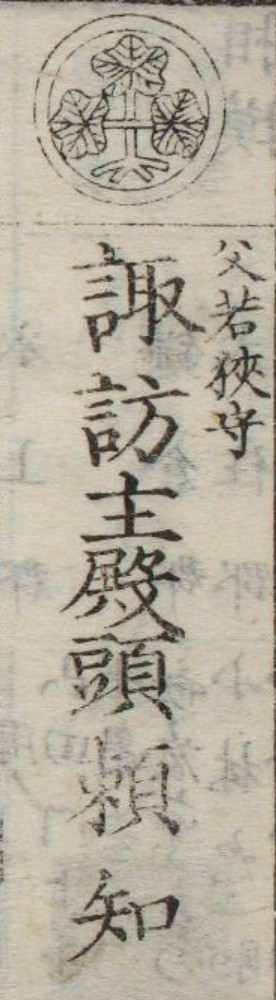 父若狭守
諏訪主殿頭頼知